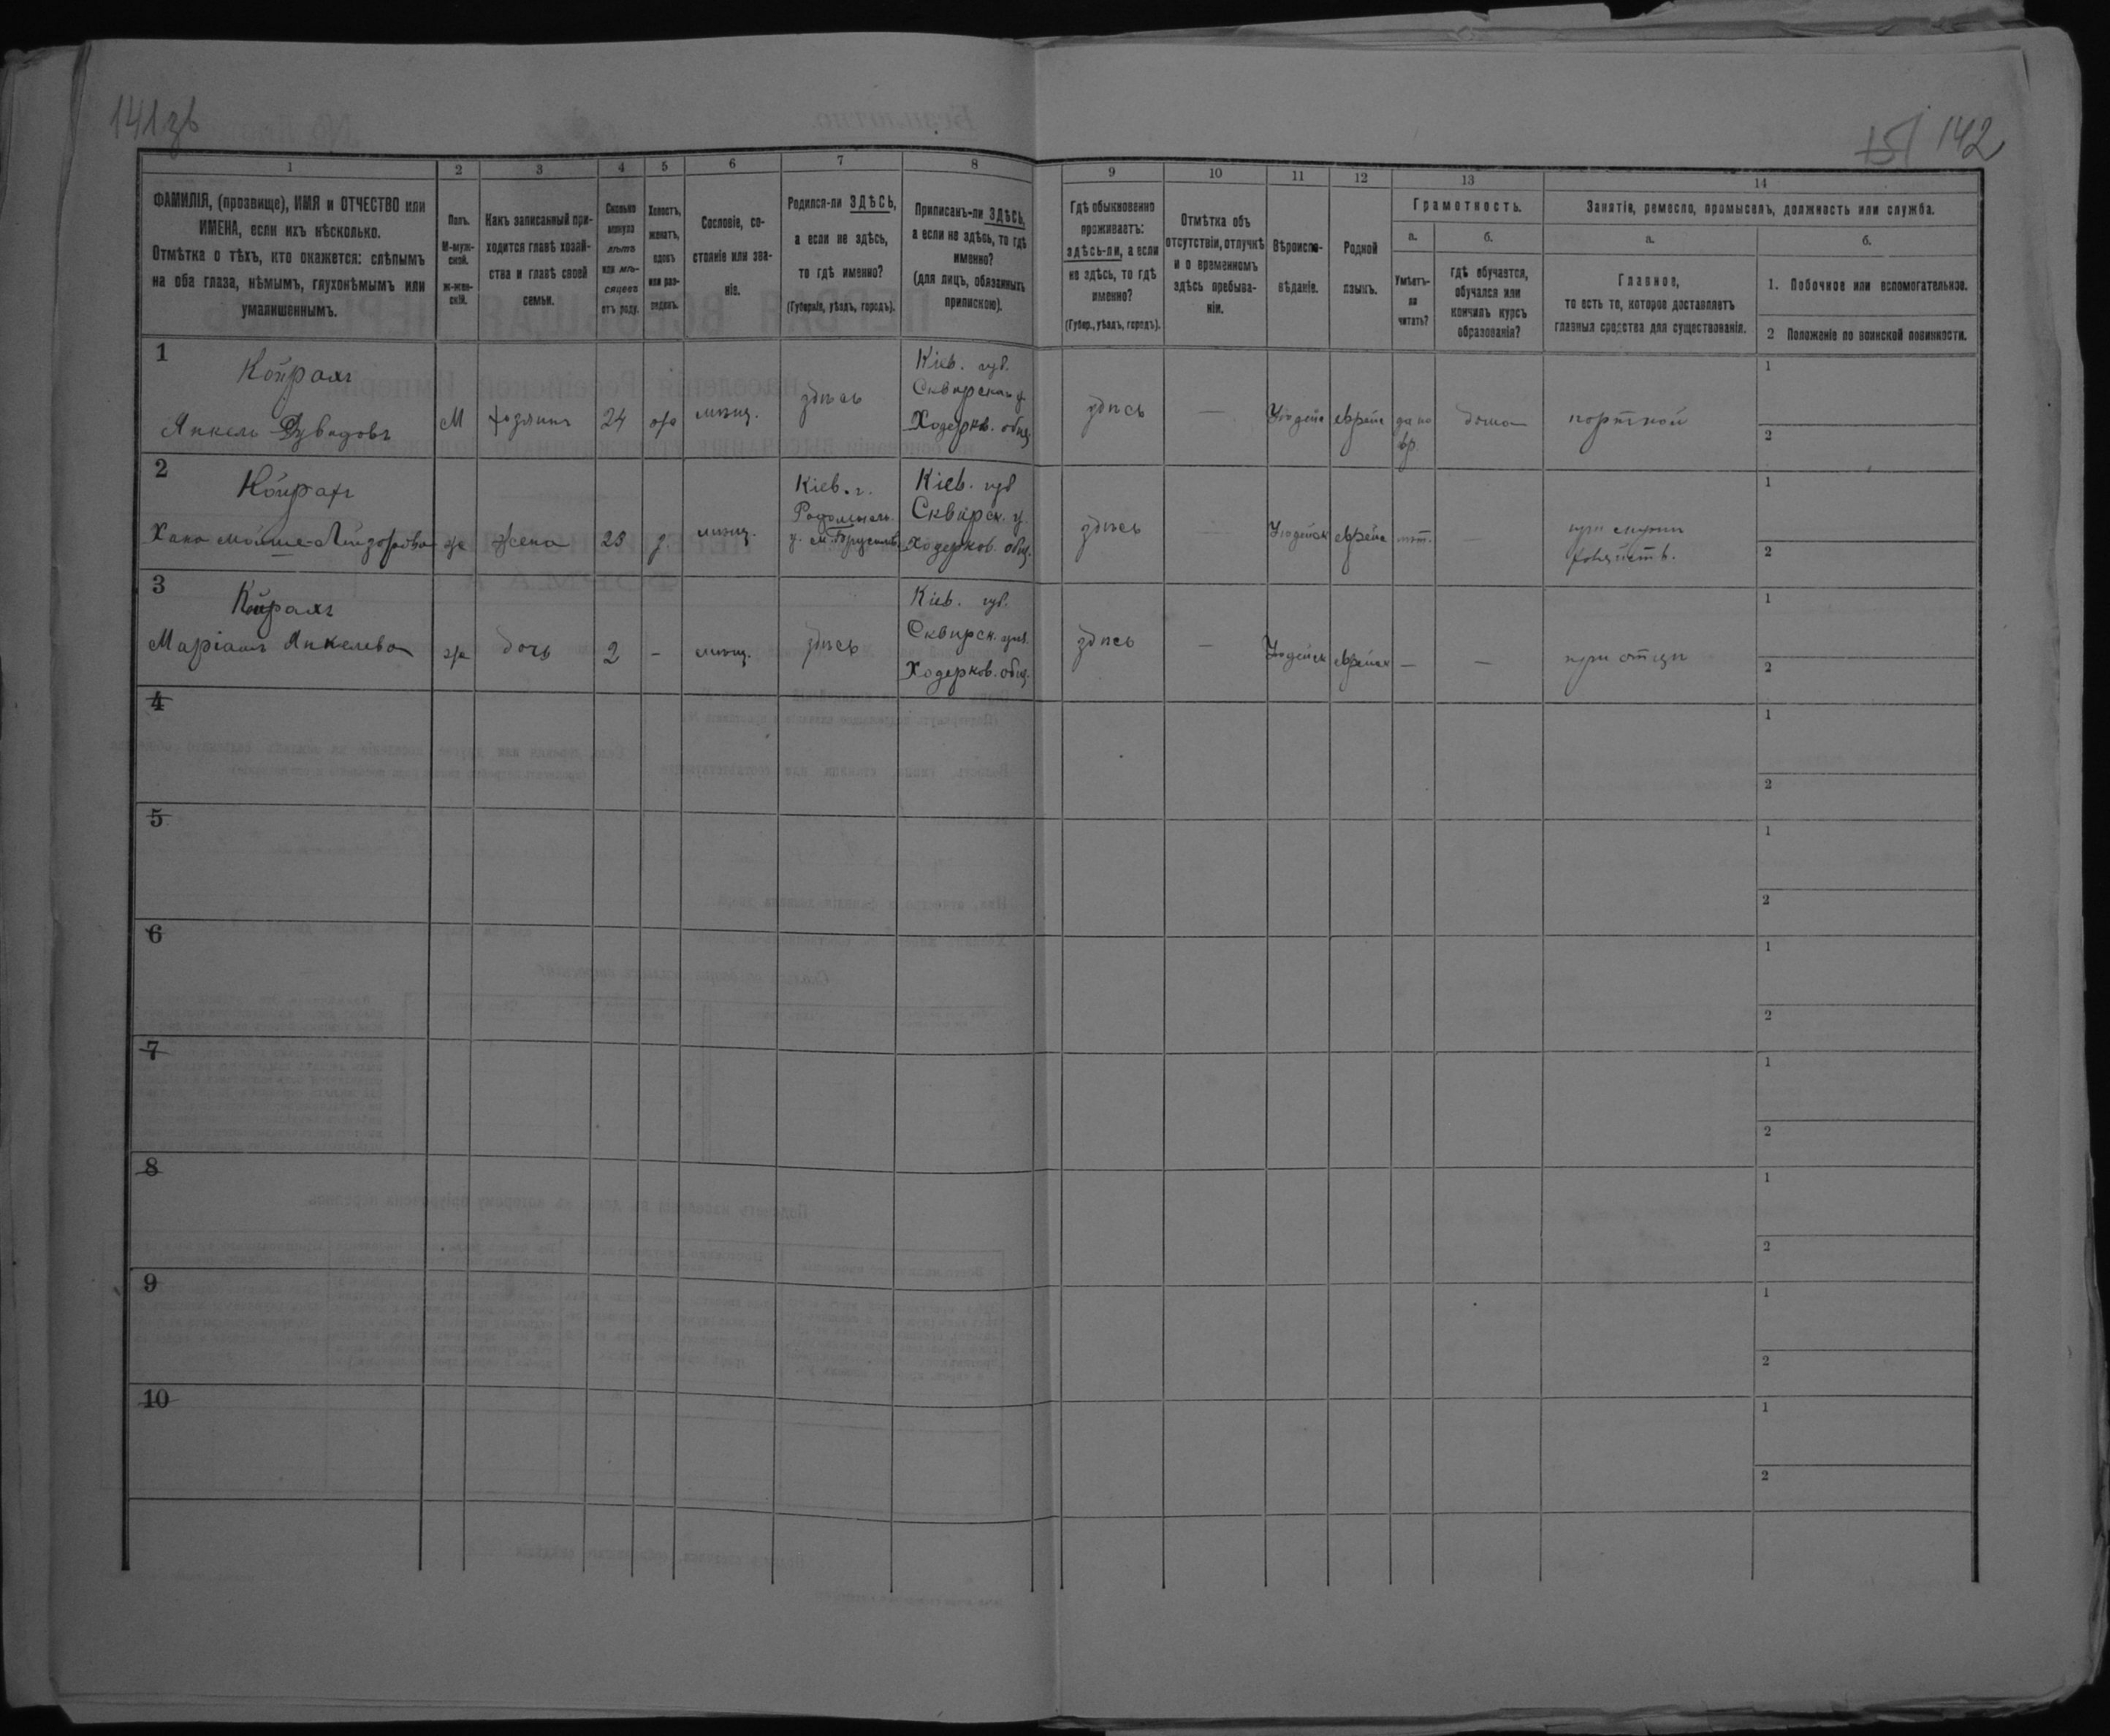 141зв
151 142
1 2 3 4 5 6 7 8 9 10 11 12 13 14
ФАМИЛІЯ, (прозвище), ИМЯ и ОТЧЕСТВО или
ИМЕНА, если ихъ нѣсколько.
Отмѣтка о тѣхъ, кто окажется: слѣпымъ
на оба глаза, нѣмымъ, глухонѣмымъ или
умалишеннымъ.
Полъ.
М-муж-
ской.
ж-жен-
скій.
Какъ записанный при-
ходится главѣ хозяй-
ства и главѣ своей
семьи.
Сколько
минуло
лѣтъ
или мѣ-
сяцевъ
отъ роду.
Холостъ,
женатъ,
вдовъ
или раз-
веденъ.
Сословіе, со-
стояніе или зва-
ніе.
Родился-ли ЗДѢСЬ,
а если не здѣсь,
то гдѣ именно?
(Губернія, уѣздъ, городъ).
Приписанъ-ли ЗДѢСЬ,
а если не здѣсь, то гдѣ
именно?
(для лицъ, обязанныхъ
припискою).
Гдѣ обыкновенно
проживаетъ:
здѣсь-ли, а если
не здѣсь, то гдѣ
именно?
(Губер., уѣздъ, городъ).
Отмѣтка объ
отсутствіи, отлучкѣ
и о временномъ
здѣсь пребыва-
ніи.
Вѣроиспо-
вѣданіе.
Родной
языкъ.
Грамотность.
а.
Умѣетъ-
ли
читать?
б.
гдѣ обучается,
обучался или
кончилъ курсъ
образованія?
Занятіе, ремесло, промыселъ, должность или служба.
а.
Главное,
то есть то, которое доставляетъ
главныя средства для существованія.
б.
1. Побочное или вспомогательное.
2 Положеніе по воинской повинности.
1
Койрахъ
Янкель
М
хозяинъ
24
мѣщ.
здѣсь
Кіев. губ.
Сквирскаго у.
Ходорков. общ.
здѣсь
—
Іюдейс
еврейс
да по
евр
дома
портной
1
2
2
Койрахъ
Хана Мойше-
ж
жена
23
мѣщ.
Кіев. г.
Радомысл.
у. м. Брусиловъ
Кіев. губ
Сквирск. у.
Ходорков. общ.
здѣсь
—
Іюдейск
еврейс
нѣт.
—
при мужѣ
1
2
3
Койрахъ
Маріамъ Янкелева
ж
дочь
2
-
мѣщ.
здѣсь
Кіев. губ.
Сквирск. уѣз.
Ходорков. общ.
здѣсь
—
Іюдейск
еврейск
—
—
при отцѣ
1
2
4
1
2
5
1
2
6
1
2
7
1
2
8
1
2
9
1
2
10
1
2